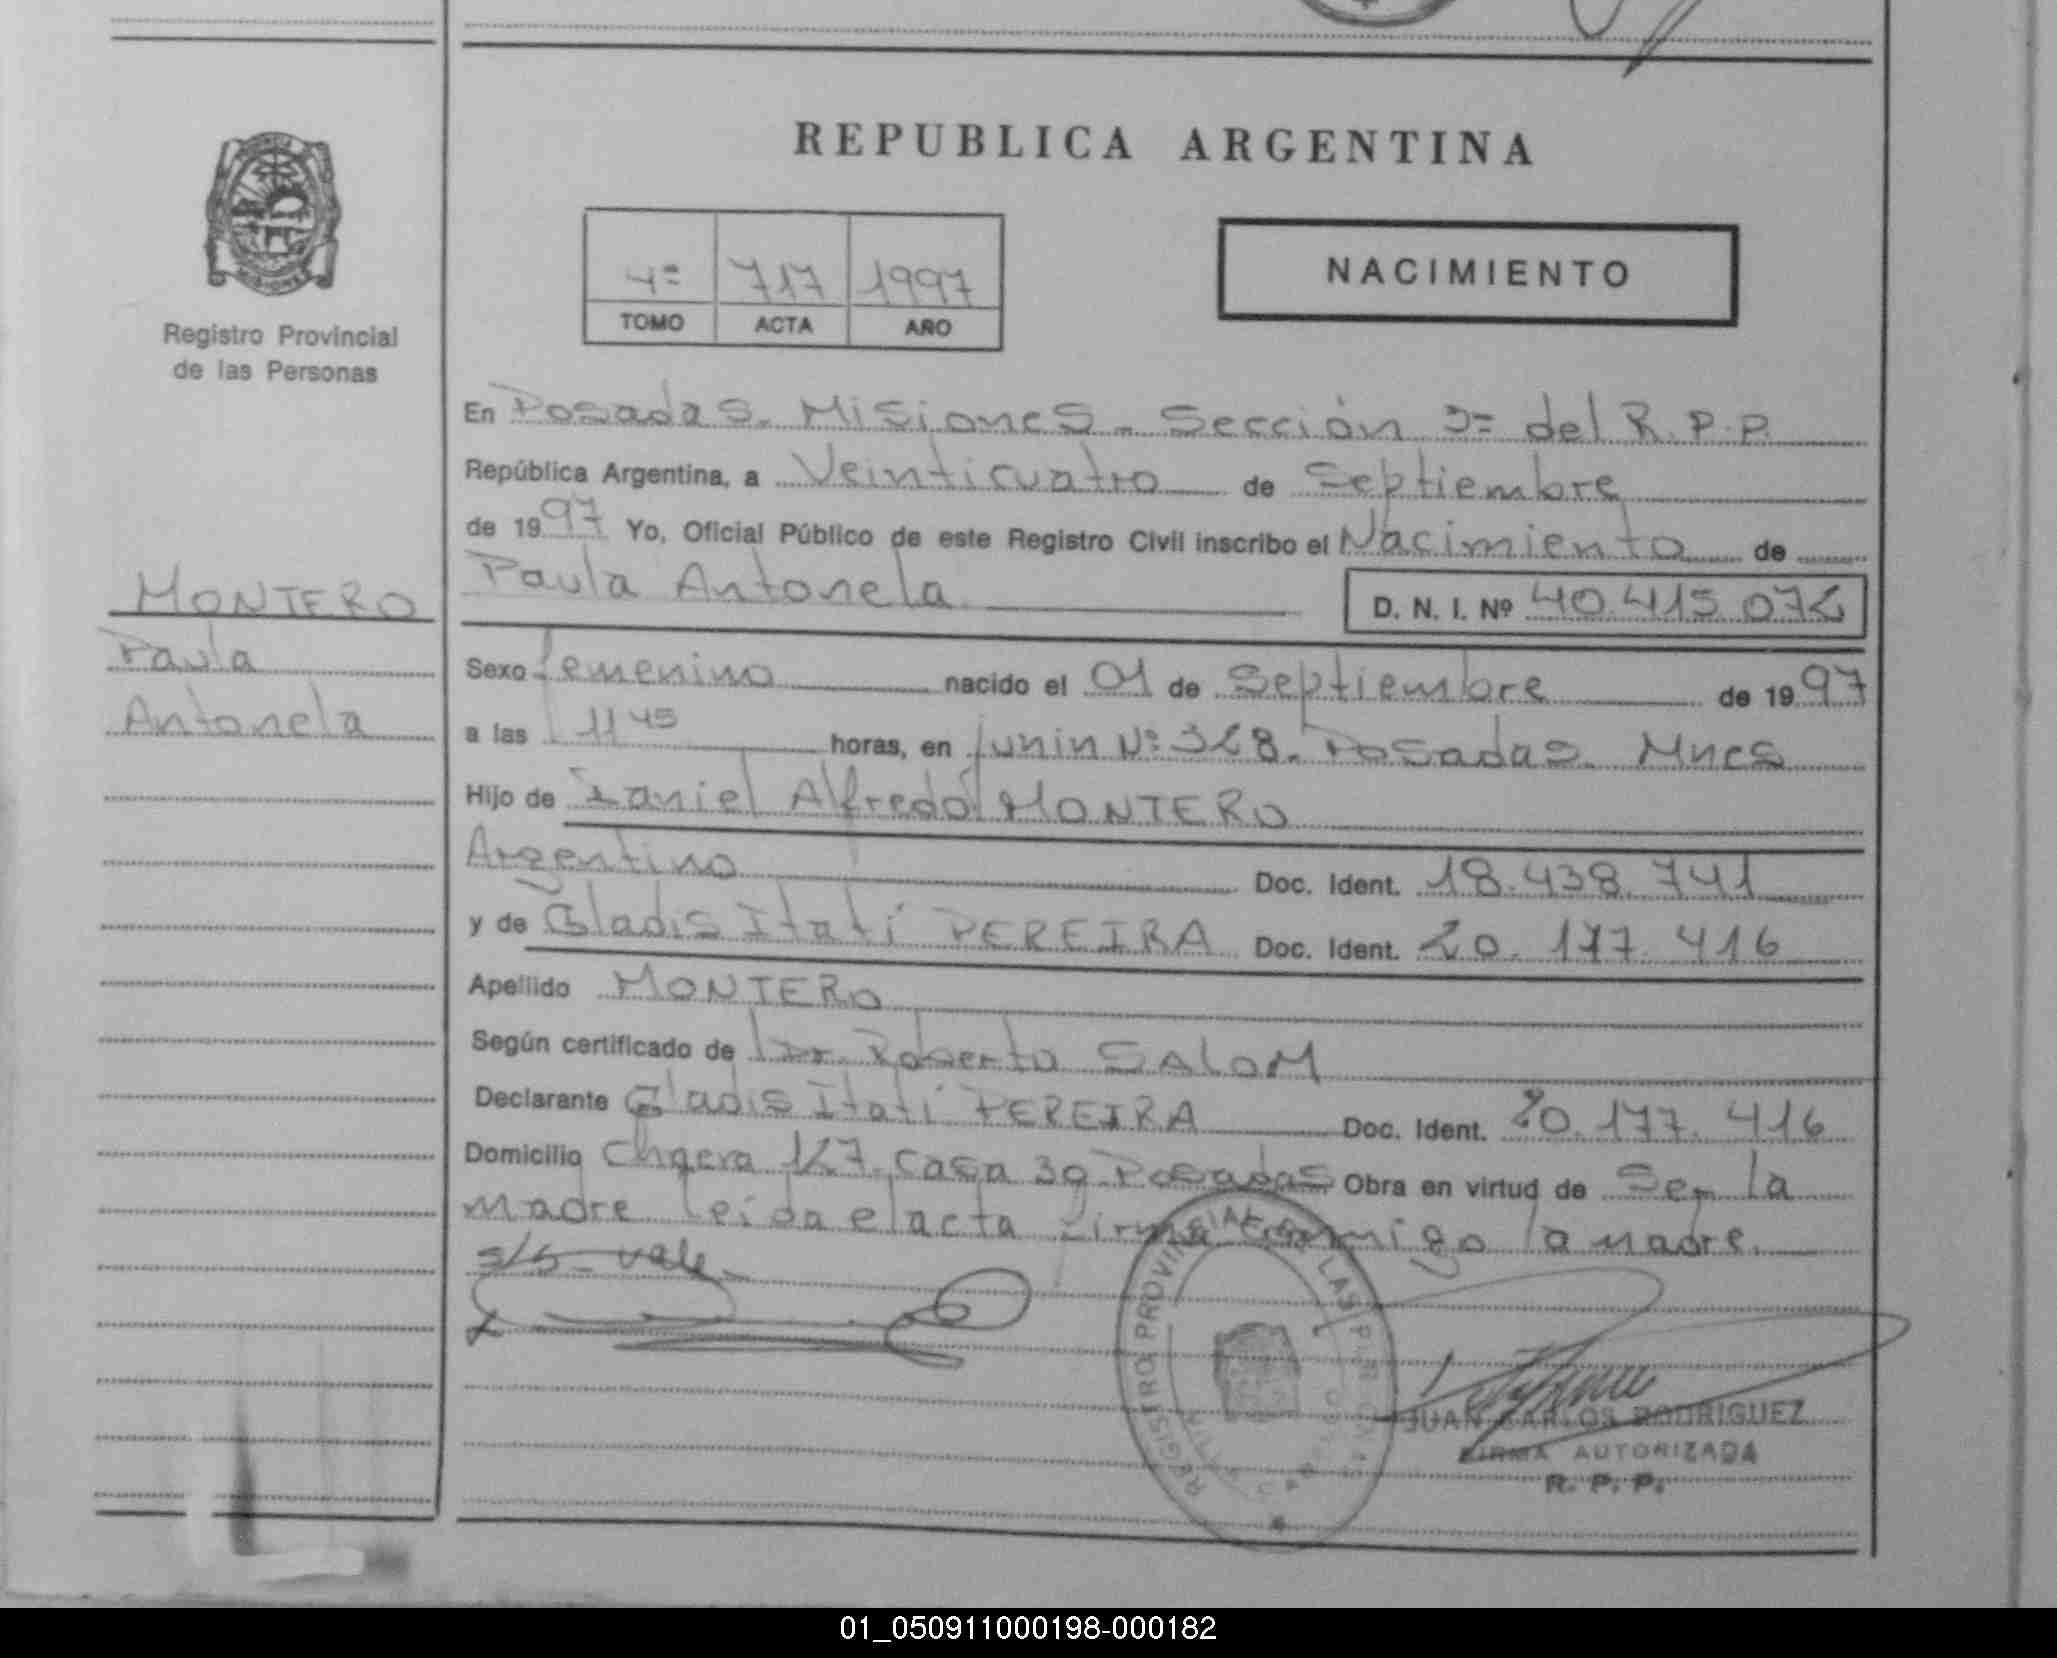 REPUBLICA ARGENTINA
MISIONES
Registro Provincial
de las Personas
4º 717 1997
TOMO ACTA AÑO
NACIMIENTO
MONTERO
Paula
Antonela
En Posadas. Misiones. Sección 3º del R.P.P.
República Argentina, a Veinticuatro de Septiembre
de 1997 Yo, Oficial Público de este Registro Civil inscribo el Nacimiento de
Paula Antonela D. N. I. Nº 40.415.072
Sexo femenino nacido el 01 de Septiembre de 1997
a las 11 45 horas, en Junin Nº 328. Posadas. Mnes
Hijo de Daniel Alfredo MONTERO
Argentino Doc. Ident. 18.438.741
y de Gladis Itatí PEREIRA Doc. Ident. 20.177.416
Apellido MONTERO
Según certificado de Dr. Roberto SALOM
Declarante Gladis Itatí PEREIRA Doc. Ident. 20.177.416
Domicilio Chacra 127. Casa 30 Posadas Obra en virtud de Ser la
madre leída el acta firma conmigo la madre.
s/b - vale
REGISTRO PROVINCIAL DE LAS PERSONAS
JUAN CARLOS RODRIGUEZ
FIRMA AUTORIZADA
R. P. P.
01_050911000198-000182